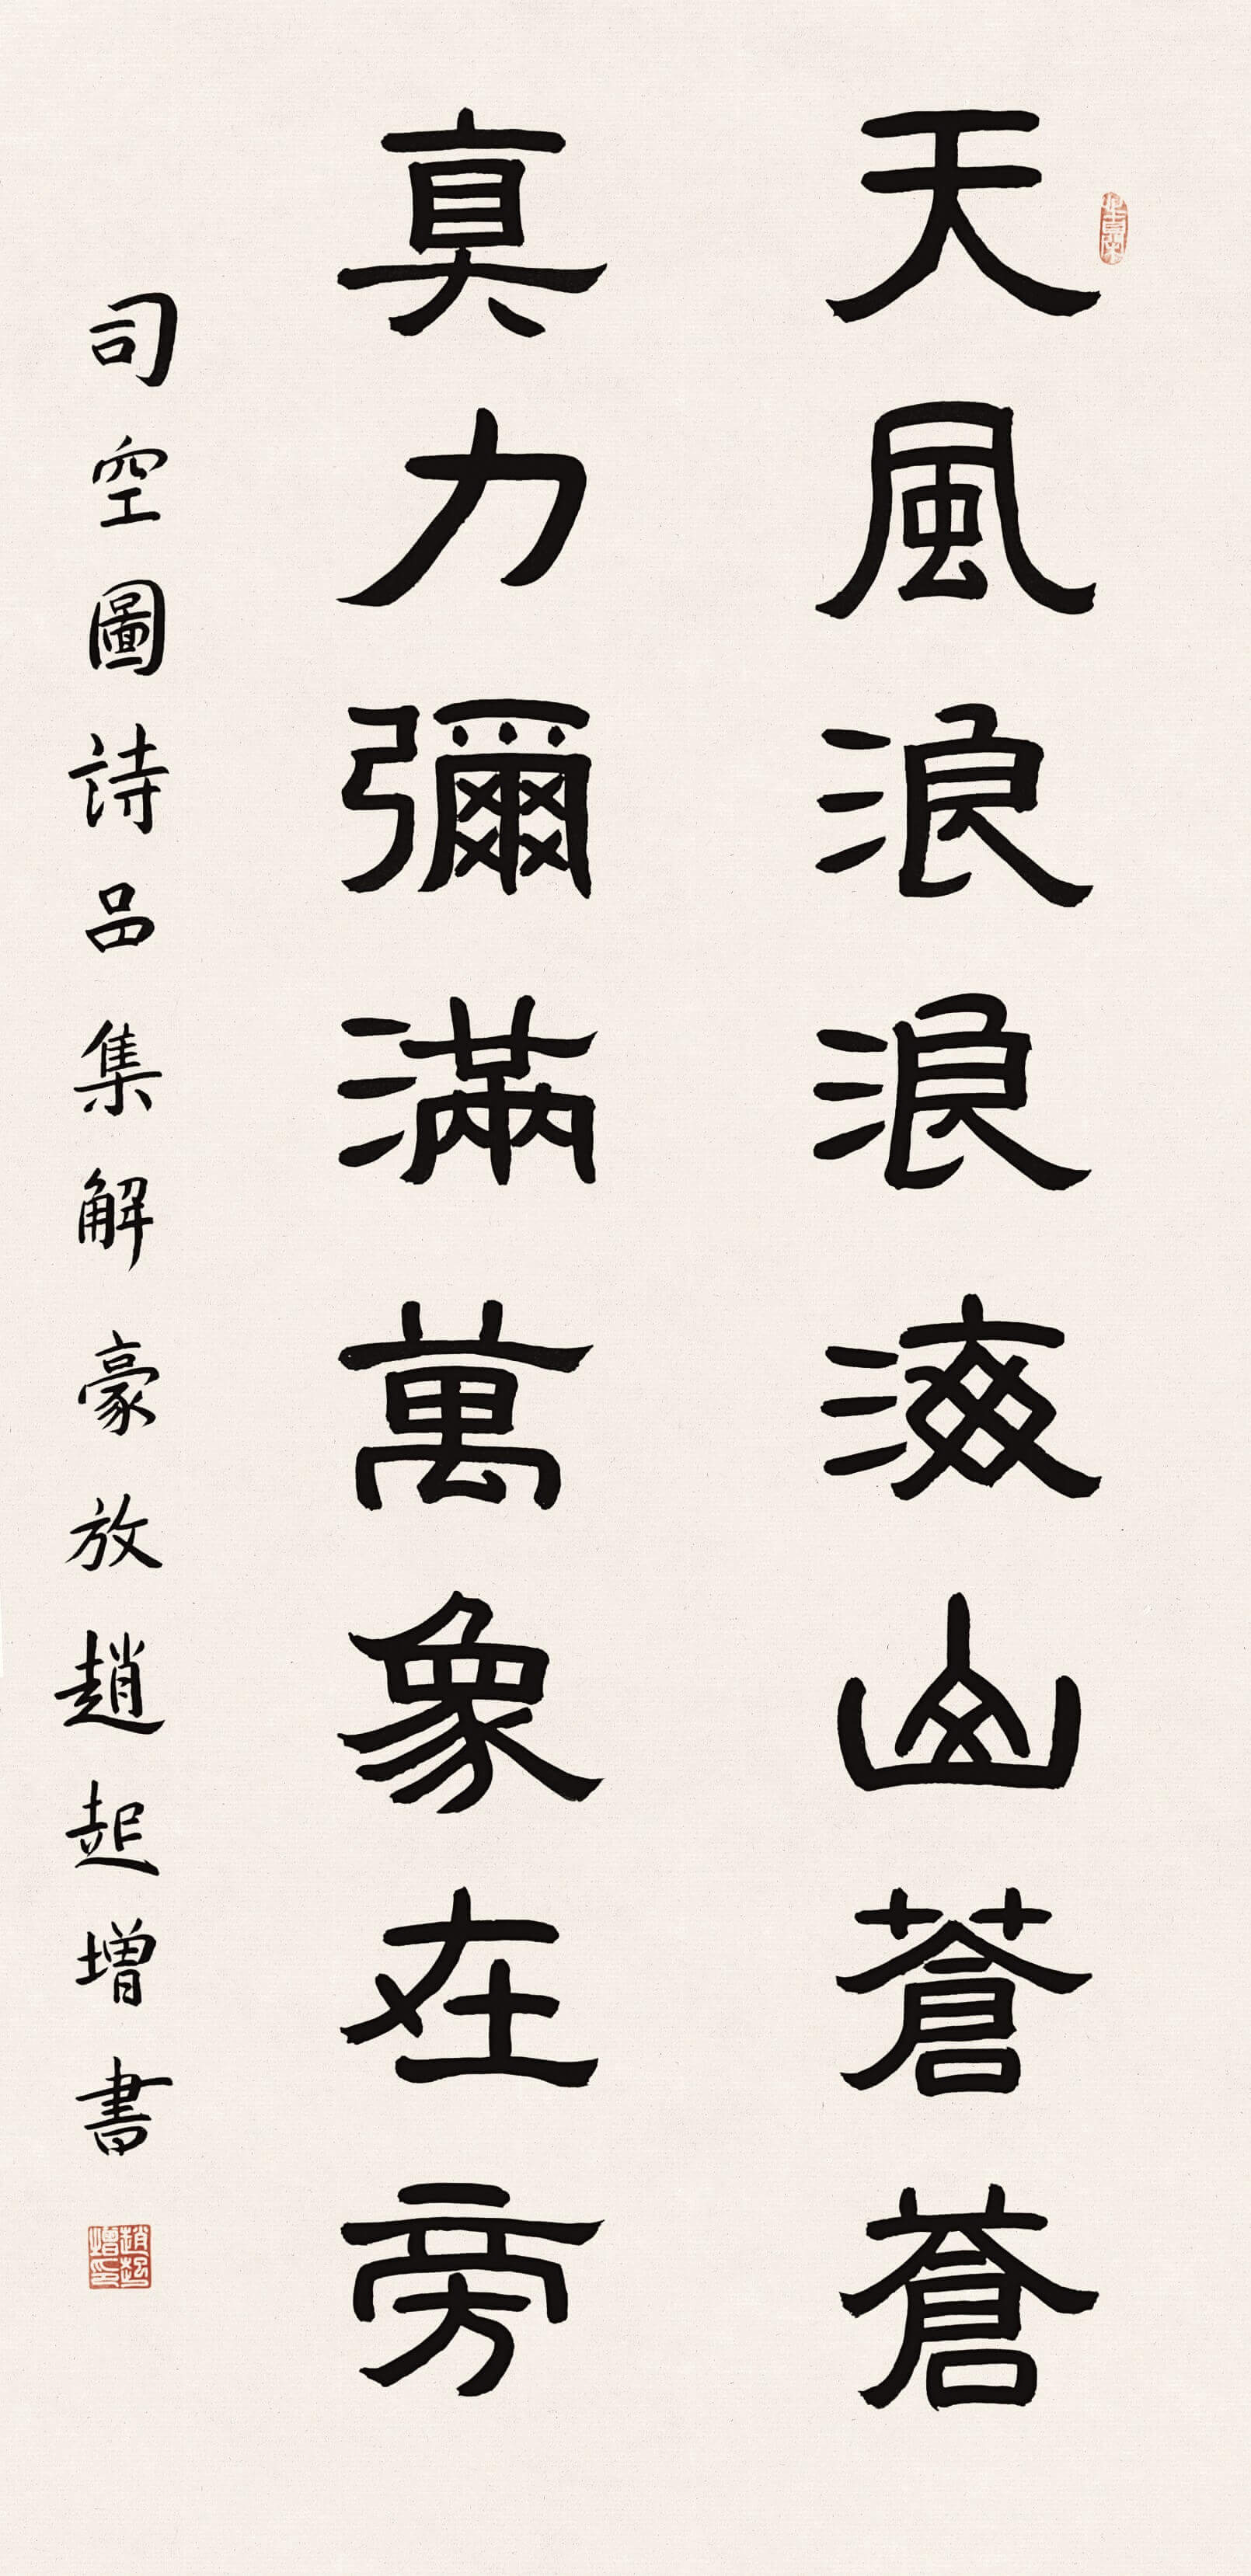 天風浪浪海山蒼蒼
真力彌滿萬象在旁
司空圖詩品集解豪放趙起增書
趙起增印